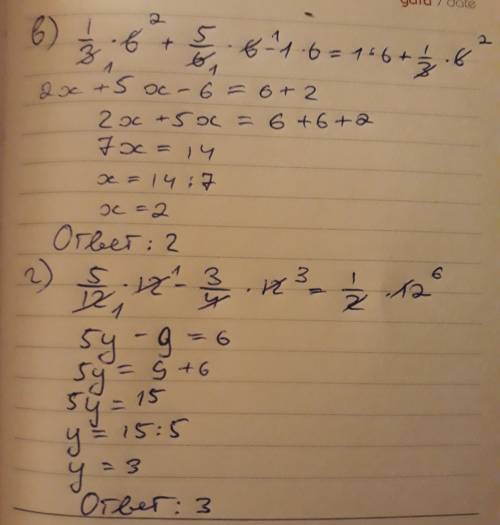 gura / date
в) 1/3 · 6² + 5/6₁ · 6¹ - 1 · 6 = 1 · 6 + 1/3 · 6²
2x + 5x - 6 = 6 + 2
2x + 5x = 6 + 6 + 2
7x = 14
x = 14 : 7
x = 2
Ответ: 2
г) 5/12₁ · 12¹ - 3/4 · 12³ = 1/2 · 12⁶
5y - 9 = 6
5y = 9 + 6
5y = 15
y = 15 : 5
y = 3
Ответ: 3